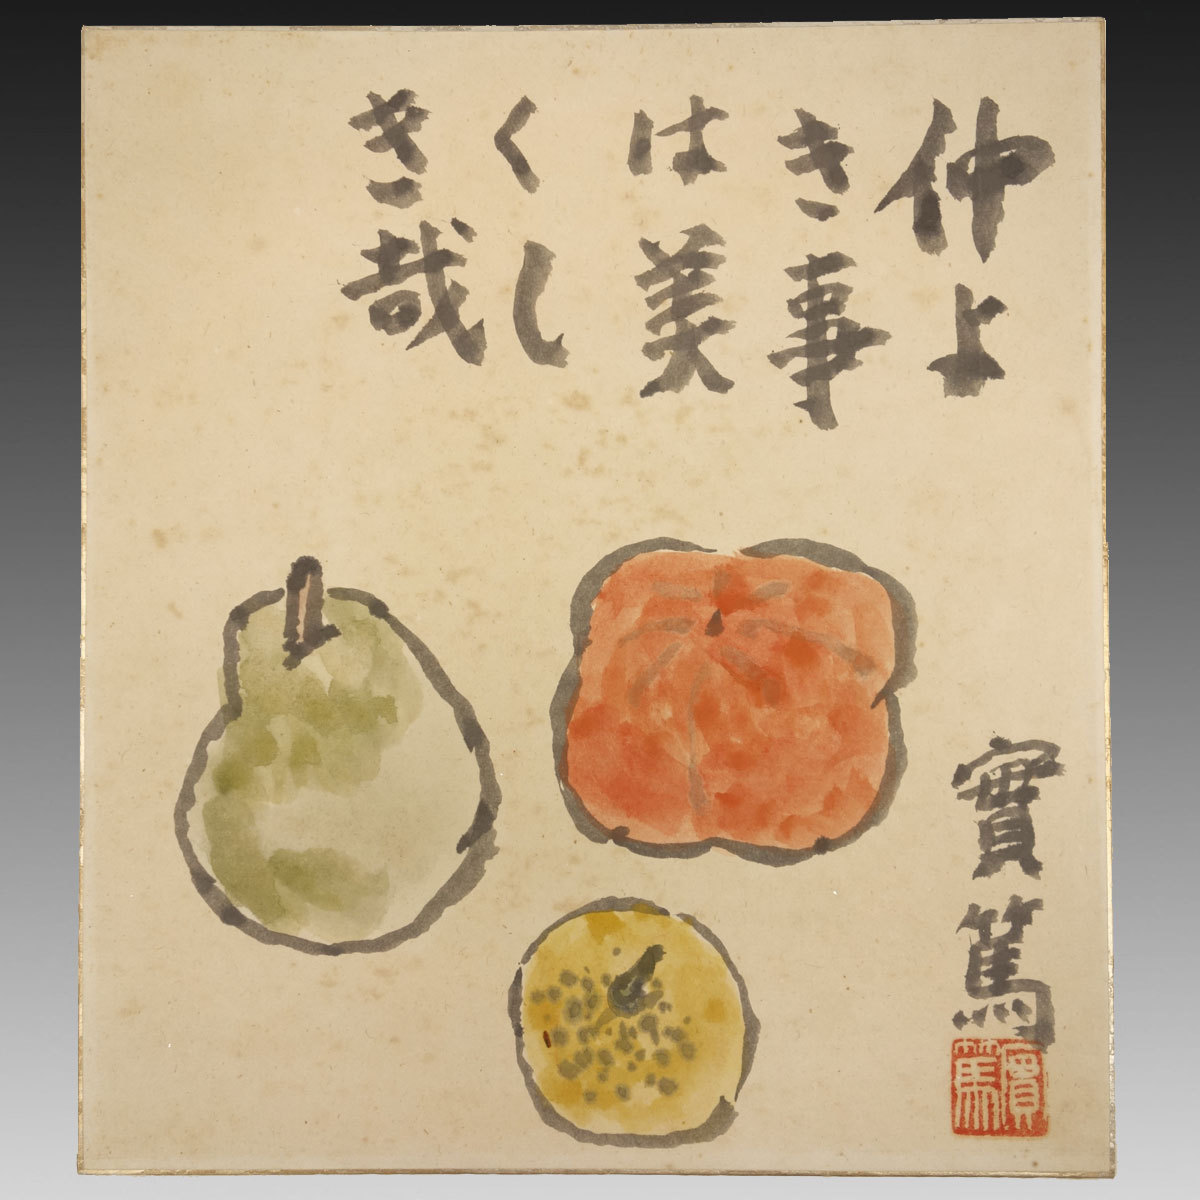 仲よ
き事
は美
くし
き哉
實篤
實篤